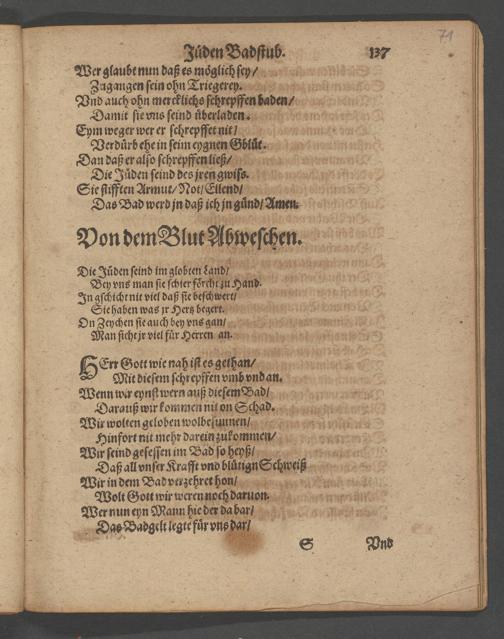 71
Jüden Badstub. 137
Wer glaubt nun daß es möglich sey/
Zugangen sein ohn Triegerey.
Vnd auch ohn mercklichs schrepffen baden/
Damit sie vns seind überladen.
Eym weger wer er schrepffet nit/
Verdürb ehe in seim eygnen Gblüt.
Dan daß er also schrepffen ließ/
Die Jüden seind des jren gwiß.
Sie stifften Armut/ Not/ Ellend/
Das Bad werd jn daß ich jn günd/ Amen.
Von dem Blut Abweschen.
Die Jüden seind im globten Land/
Bey vns man sie schier förcht zu Hand.
In gschicht nit viel daß sie beschwert/
Sie haben was jr Hertz begert.
On Zeychen sie auch bey vns gan/
Man sicht jr viel für Herren an.
HErr Gott wie nah ist es gethan/
Mit diesem schrepffen vmb vnd an.
Wenn wir eynst wern auß diesem Bad/
Darauß wir kommen nit on Schad.
Wir wolten geloben wolbesunnen/
Hinfort nit mehr darein zukommen/
Wir seind gesessen im Bad so heyß/
Daß all vnser Krafft vnd blütign Schweiß
Wir in dem Bad verzehret hon/
Wolt Gott wir weren noch daruon.
Wer nun eyn Mann hie der da bar/
Das Badgelt legte für vns dar/
S Vnd